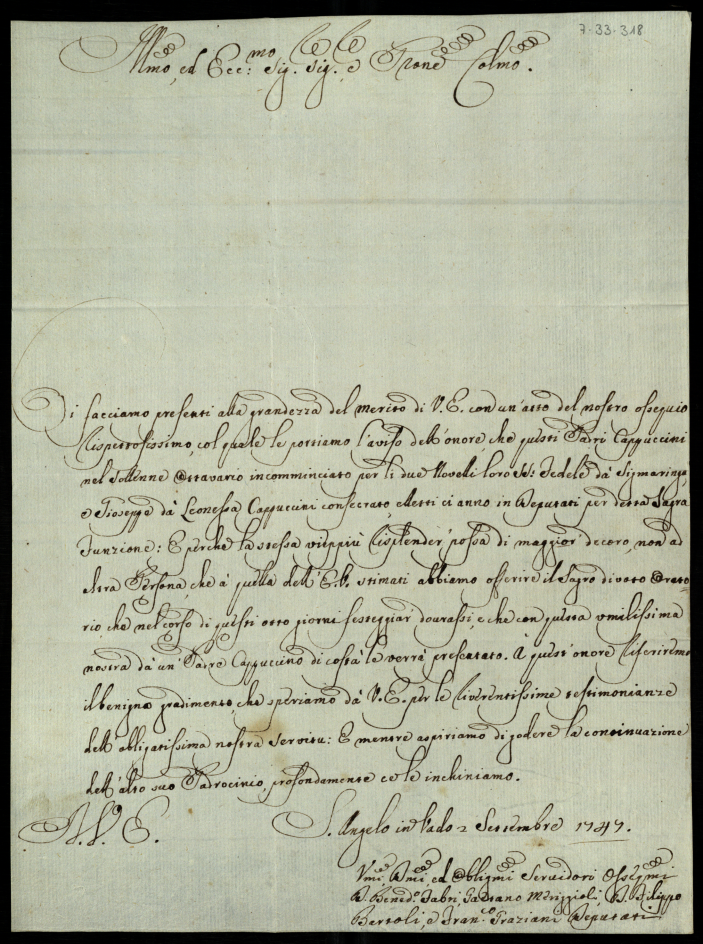 7-33-318
Illmo, ed Ecc:mo Sig. Sig. e Prone Colmo.
Ci facciamo presenti alla grandezza del merito di V.E. con un'atto del nostro ossequio
rispettosissimo, col quale le portiamo l'aviso dell'onore, che questi Padri Cappuccini
nel sollenne Ottavario incomminciato per li due Novelli loro SS: Fedele dà Sigmaringa
e Gioseppe dà Leonessa Cappuccini consecrato, eletti ci anno in Deputati per detta Sagra
Funzione: E perche la stessa vieppiù risplender possa di maggior decoro, non ad
altra Persona, che à quella dell'E.V. stimati abbiamo offerire il Sagro divoto Orato=
rio, che nel corso di questi otto giorni festeggiar dourassi, e che con questa umilissima
nostra dà un Padre Cappuccino di costà le verrà presentato. A quest'onore riferiremo
il benigno gradimento, che speriamo dà V.E. per le riverentissime testimonianze
dell'obligatissima nostra servitù: E mentre aspiriamo di godere la continuazione
dell'alto suo Padrocinio, profondamente ce le inchiniamo.
D.V.E. S. Angelo in Vado 2 Settembre 1747.
Vmi Dmi, ed Obligmi Servidori Osseqmi
D. Bened.o Fabri, Gaetano Meriggioli, D. Filippo
Bartoli, e Fran.co Graziani Deputati